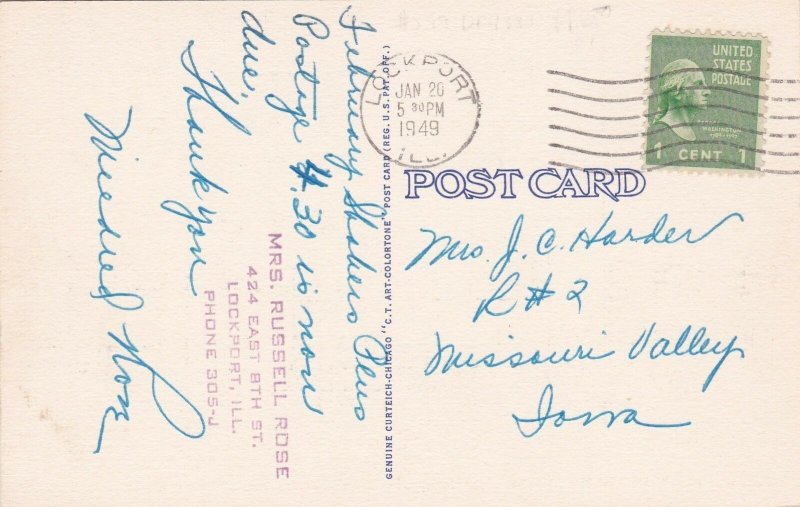 February Shakers Plus
Postage 4.30 is now
due.
Thank you
Mildred Rose
MRS. RUSSELL ROSE
424 EAST 8TH ST.
LOCKPORT, ILL.
PHONE 305-J
GENUINE CURTEICH-CHICAGO "C.T. ART-COLORTONE" POST CARD (REG. U.S. PAT. OFF.)
LOCKPORT
JAN 20
5 30 PM
1949
ILL.
UNITED
STATES
POSTAGE
WASHINGTON
1 CENT 1
POST CARD
Mrs. J. C. Harder
R # 2
Missouri Valley
Iowa